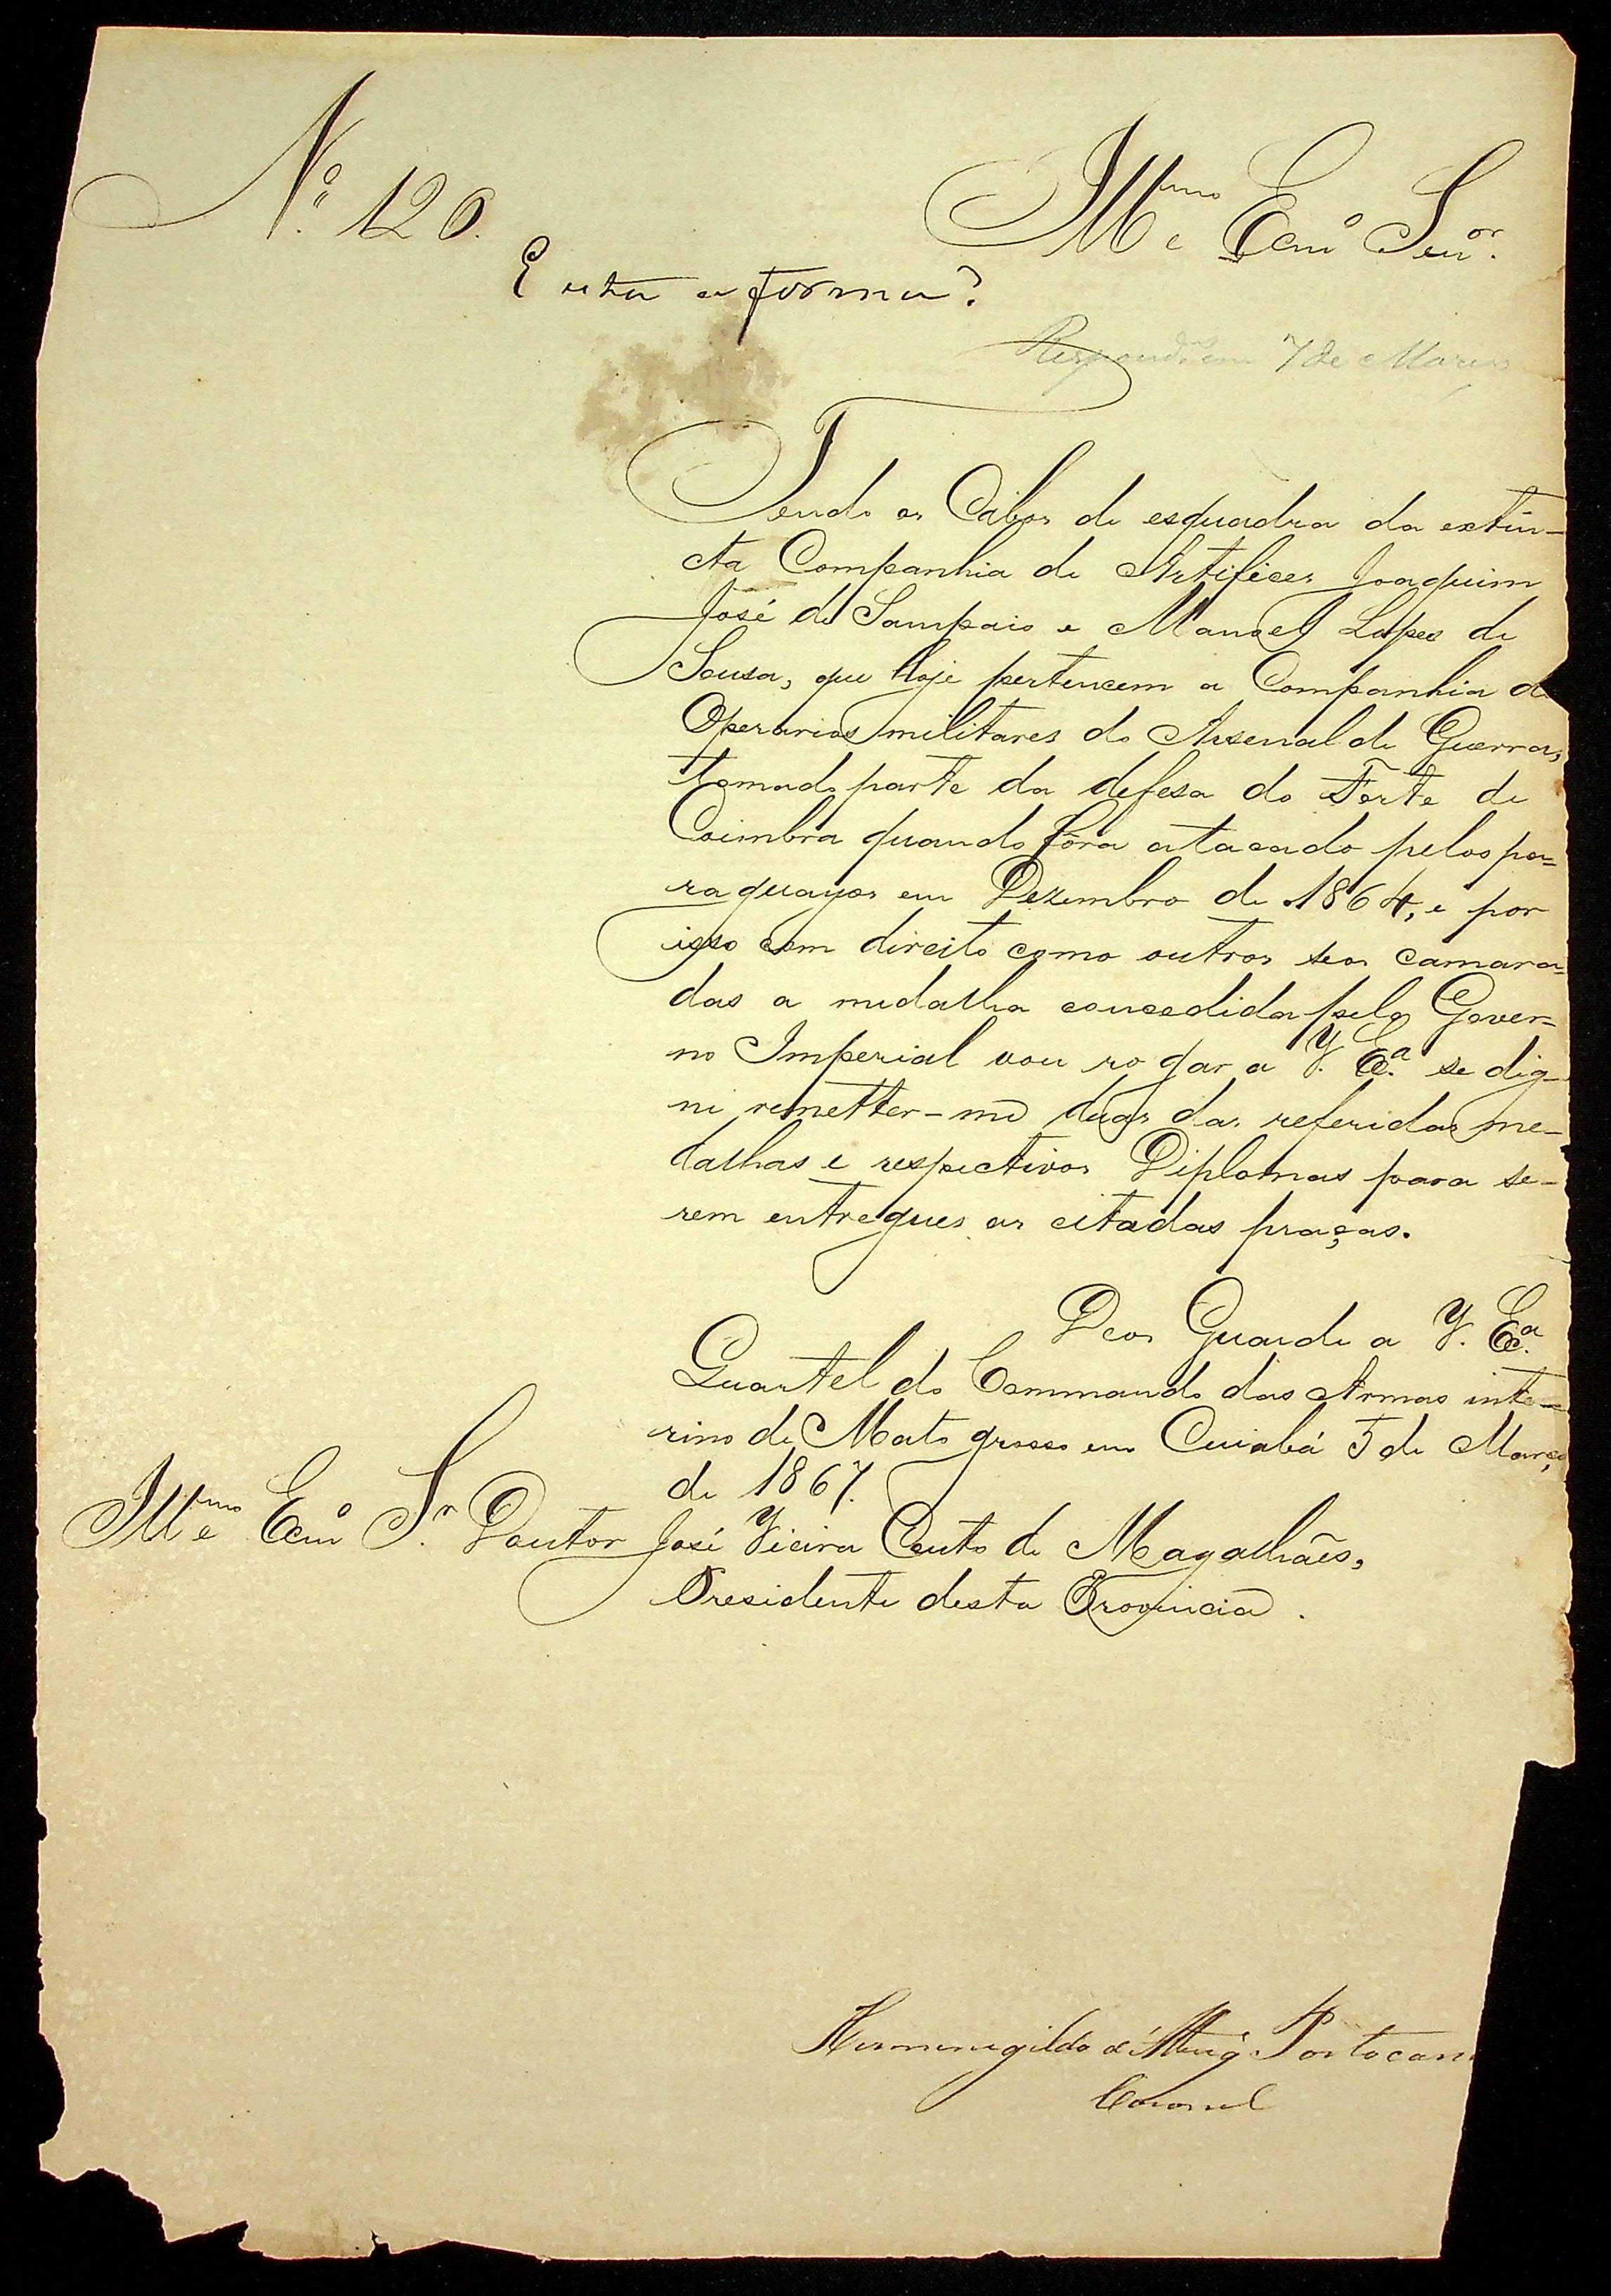 Nº 120.
Illmo e Exmo Senor.
Esta a forma?
Respondida em 7 de Março
Tendo os Cabos de esquadra da extin-
cta Companhia de Artifices Joaquim
José de Sampaio e Manoel Lopes de
Sousa, que hoje pertencem a Companhia de
Operarios militares do Arsenal de Guerra,
tomado parte da defesa do Forte de
Coimbra quando fôra atacado pelos pa=
raguayos em Dezembro de 1864, e por
isso com direito como outros seos camara=
das a medalha concedida pelo Gover=
no Imperial vou rogar a V. Exa. se dig-
ne remetter-me duas das referidas me-
dalhas e respectivos Diplomas para se-
rem entregues as citadas praças.
Deos Guarde a V. Exa.
Quartel do Commando das Armas inte=
rino de Mato grosso em Cuiabá 5 de Março
de 1867.
Illmo e Exmo Sr. Doutor José Vieira Couto de Magalhães,
Presidente desta Provincia.
Hermenegildo d'Albuq. Portocarr
Coronel